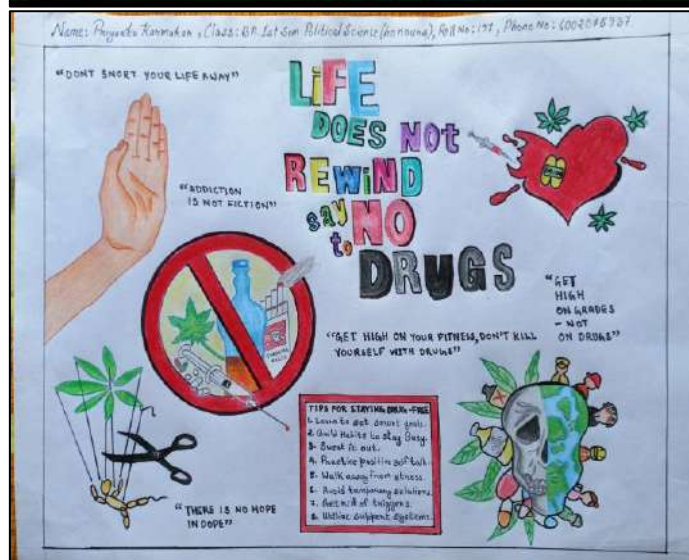 Name: Priyanka Karmakar, Class: BA 1st Sem Political Science (honours), Roll No: 197, Phone No:
"DONT SNORT YOUR LIFE AWAY"
LiFE
DOES NOt
REWiND
say NO
to,
DRUGS
"ADDICTION
IS NOT FICTION"
"GET
HIGH
ON GRADES
- NOT
ON DRUGS"
"GET HIGH ON YOUR FITNESS, DON'T KILL
YOURSELF WITH DRUGS"
TIPS FOR STAYING DRUG-FREE
1. Learn to set smart goals.
2. Build Habits to Stay Busy.
3. Sweat it out.
4. Practice positive self talk.
5. Walk away from stress.
6. Avoid temporary solutions.
7. Get rid of triggers.
8. Utilise support systems.
"THERE IS NO HOPE
IN DOPE"